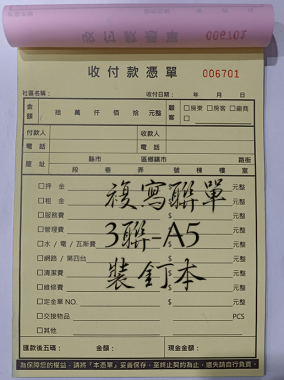 收付款憑單 006701
社區名稱： 收付日期： 年 月 日
金額 拾 萬 仟 佰 拾 元整 顧客 □房東 □房客 □廠商 □
付款人 收款人
電話 電話
屋址 縣市 區鄉鎮市 路街
段 巷 弄 號 棟 樓 室
□押 金 $ 元整
□租 金 $ 元整
□服務費 $ 元整
□管理費 $ 元整
□水 / 電 / 瓦斯費 $ 元整
□網路 / 第四台 $ 元整
□清潔費 $ 元整
□維修費 $ 元整
□定金單NO. $ 元整
□交接物品 PCS
□其他
複寫聯單
3聯-A5
裝釘本
匯款後五碼： 金額： 現金金額：
為保障您的權益，請將「本憑單」妥善保存，至終止契約為止，遺失請自行負責。